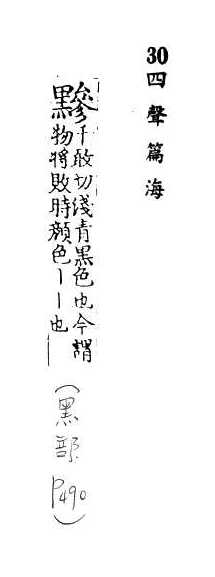 30四聲篇海
黲
千敢切淺青黑色也今謂
物將敗時顏色丨丨也
(黑部 P490)